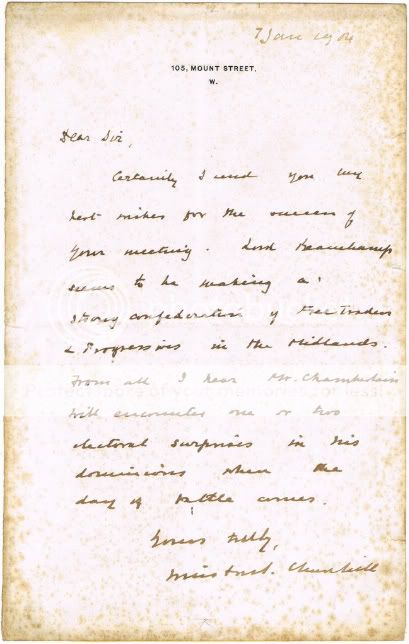 7 Jan 1904
105, MOUNT STREET.
W.
Dear Sir,
Certainly I send you my
best wishes for the success of
your meeting. Lord Beauchamp
seems to be making a
strong confederation of Free Traders
& Progressives in the Midlands.
From all I hear Mr. Chamberlain
will encounter one or two
electoral surprises in his
dominions when the
day of battle comes.
Yours fthly,
Winston S. Churchill